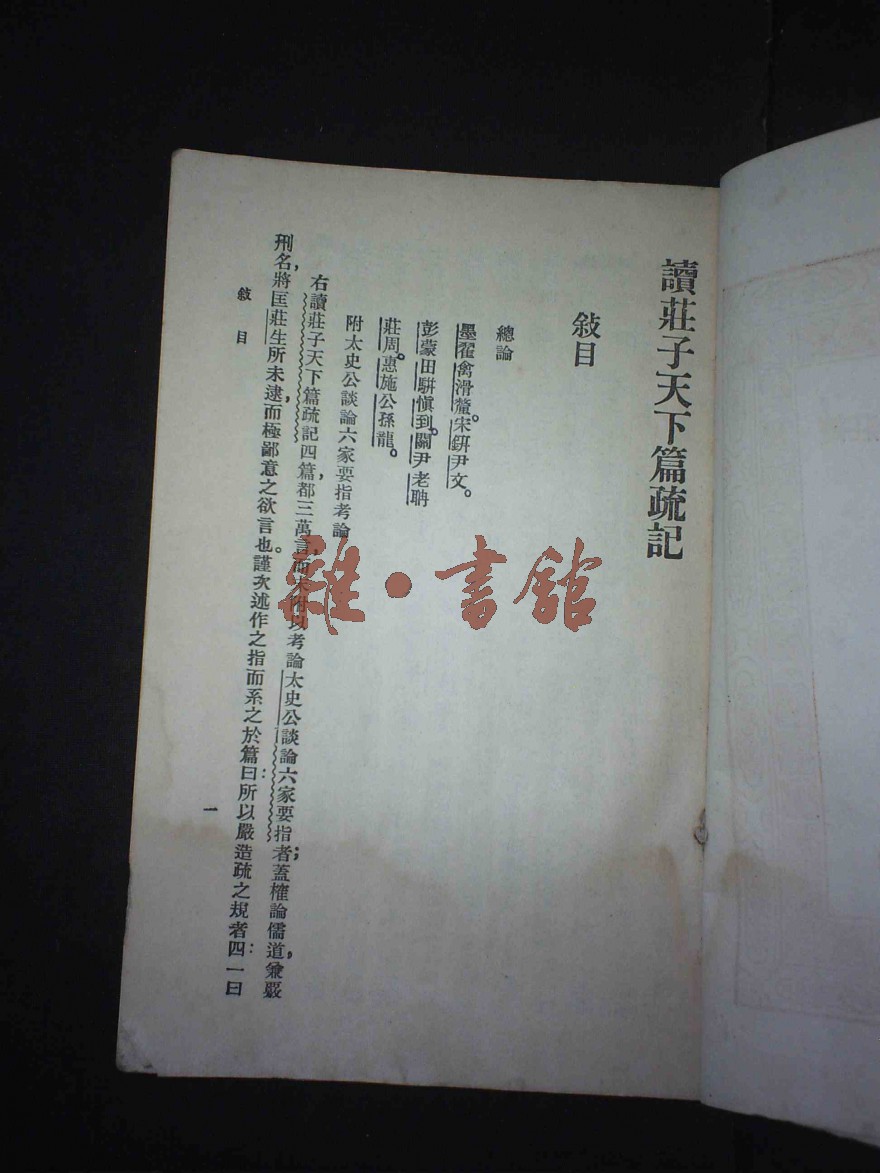 讀莊子天下篇疏記
敍目
總論
墨翟禽滑釐。宋鈃尹文。
彭蒙田駢慎到。關尹老聃
莊周。惠施公孫龍。
附太史公談論六家要指考論
右讀莊子天下篇疏記四篇,都三萬言,而末附以考論太史公談論六家要指者;蓋榷論儒道,兼覈
刑名,將匡莊生所未逮,而極鄙意之欲言也。謹次述作之指而系之於篇曰:所以嚴造疏之規者四:一曰
敍目
一
雜·書館